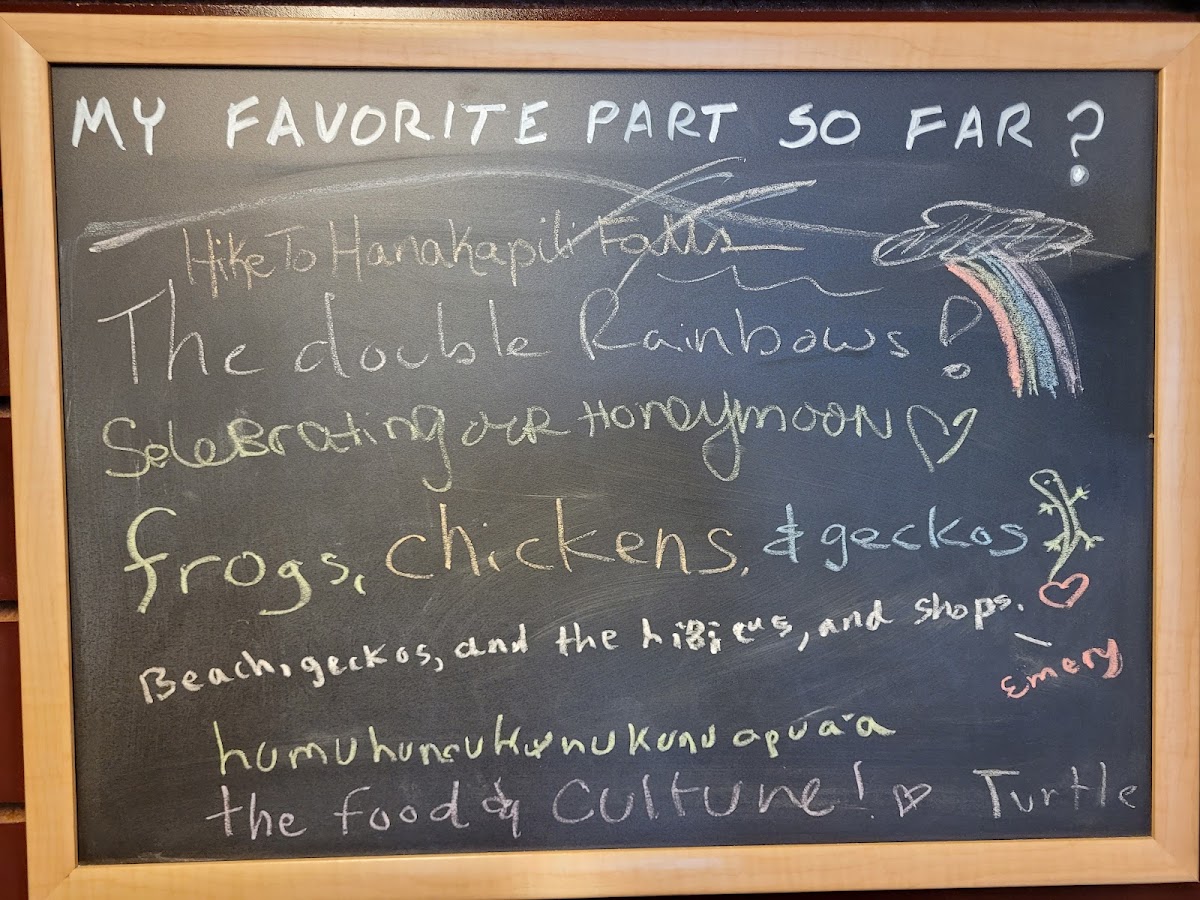 MY FAVORITE PART SO FAR?
Hike To Hanakapili Falls
The double Rainbows!
Selebrating our Honeymoon
frogs, chickens, & geckos
Beach, geckos, and the hibicus, and shops.
Emery
the food & Culture! Turtle